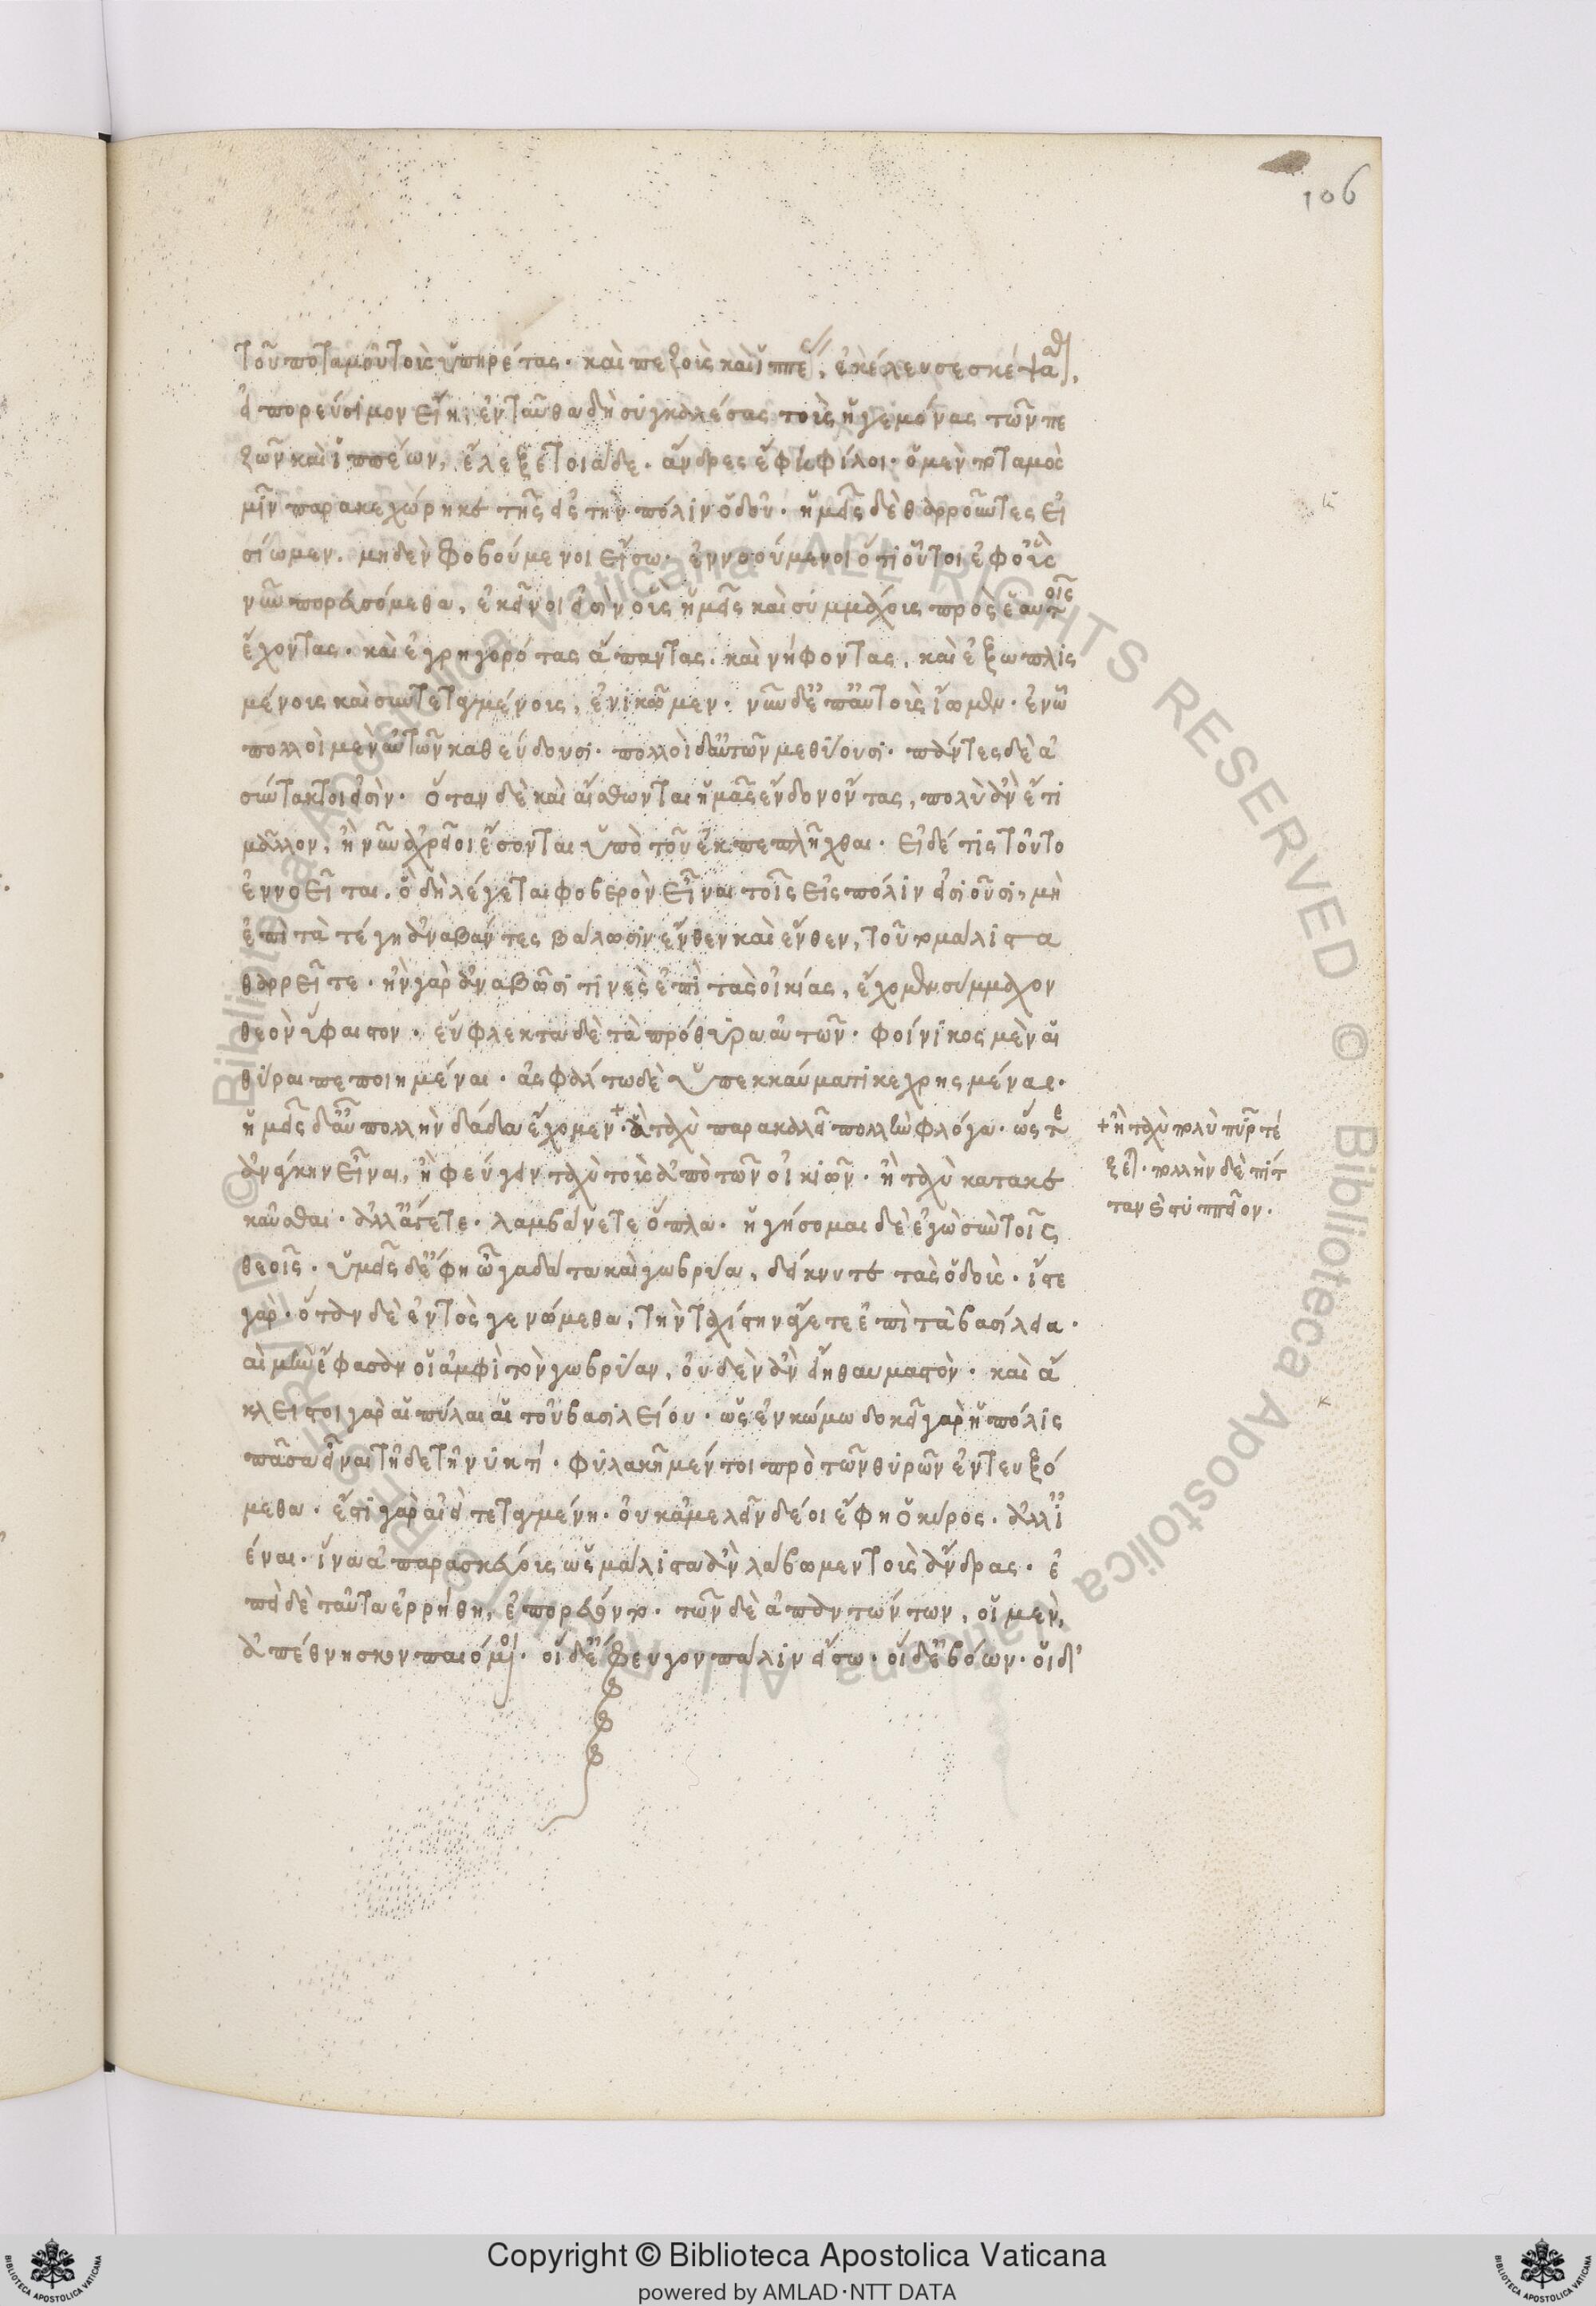 106
τοῦ ποταμοῦ τοὺς ὑπηρέτας· καὶ πεζοὺς καὶ ἱππέας, ἐκέλευσε σκέψασθαι,
εἰ πορεύσιμον εἴη, ἐνταῦθα δὴ συγκαλέσας τοὺς ἡγεμόνας τῶν πε
ζῶν καὶ ἱππέων, ἔλεξε τοιάδε· ἄνδρες ἔφη φίλοι· ὁ μὲν ποταμὸς
μῖν παρακεχώρηκε τῆς εἰς τὴν πόλιν ὁδοῦ· ἡμεῖς δὲ θαρροῦντες εἰ
σίωμεν. μηδὲν φοβούμενοι εἴσω· ἐννοούμενοι ὅτι οὗτοι ἐφ' οὓς
νῦν πορευσόμεθα, ἐκεῖνοι εἰσὶν οὓς ἡμεῖς καὶ συμμάχους πρὸς ἑαυτοῖς
ἔχοντας· καὶ ἐγρηγορότας ἅπαντας. καὶ νήφοντας, καὶ ἐξωπλισ
μένους καὶ συντεταγμένους, ἐνικῶμεν· νῦν δ' ἐπ' αὐτοὺς ἴωμεν· ἐν ᾧ
πολλοὶ μὲν αὐτῶν καθεύδουσι· πολλοὶ δ' αὐτῶν μεθύουσι· πάντες δὲ ἀ
σύντακτοι εἰσίν· ὅταν δὲ καὶ αἴσθωνται ἡμᾶς ἔνδον ὄντας, πολὺ ἂν ἔτι
μᾶλλον, ἢ νῦν ἀχρεῖοι ἔσονται ὑπὸ τοῦ ἐκπεπλῆχθαι· εἰ δέ τις τοῦτο
ἐννοεῖται. ὃ δὴ λέγεται φοβερὸν εἶναι τοῖς εἰς πόλιν εἰσιοῦσι, μὴ
ἐπὶ τὰ τέγη ἀναβάντες βάλωσιν ἔνθεν καὶ ἔνθεν, τοῦτο μάλιστα
θαρρεῖτε· ἢν γὰρ ἀναβῶσί τινες ἐπὶ τὰς οἰκίας, ἔχομεν σύμμαχον
θεὸν ὕφαιστον· εὔφλεκτα δὲ τὰ πρόθυρα αὐτῶν· φοίνικος μὲν αἱ
θύραι πεποιημέναι· ἀσφάλτω δὲ ὑπεκκαύματι κεχρησμέναι·
ἡμεῖς δ' αὖ πολλὴν δᾷδα ἔχομεν·+ ἃ ταχὺ παρακαλεῖ πολλὴν φλόγα· ὥστε
ἀνάγκην εἶναι, ἢ φεύγειν ταχὺ τοὺς ἀπὸ τῶν οἰκιῶν· ἢ ταχὺ κατακε
καῦσθαι· ἀλλ' ἄγετε· λαμβάνετε ὅπλα· ἡγήσομαι δὲ ἐγὼ σὺν τοῖς
θεοῖς· ὑμεῖς δ' ἔφη ὦ γαδάτα καὶ γωβρύα, δείκνυτε τὰς ὁδούς· ἴστε
γάρ· ὅταν δὲ ἐντὸς γενώμεθα, τὴν ταχίστην ἄγετε ἐπὶ τὰ βασίλεια·
αἱ μὴν ἔφασαν οἱ ἀμφὶ τὸν γωβρύαν, οὐδὲν ἂν εἴη θαυμαστόν· καὶ ἄ
κλειστοι γὰρ αἱ πύλαι αἱ τοῦ βασιλείου· ὡς ἐν κώμω δοκεῖ γὰρ ἡ πόλις
πᾶσα εἶναι τῇδε τῇ νυκτί· φυλακῇ μέν τοι πρὸ τῶν θυρῶν ἐντευξό
μεθα· ἔστι γὰρ αἰεὶ τεταγμένη· οὐκ ἀμελεῖν δέοι ἔφη ὁ κῦρος· ἀλλ' ἰ
έναι· ἵνα ἀπαρασκεύους ὡς μάλιστα ἂν λάβωμεν τοὺς ἄνδρας· ἐ
πεὶ δὲ ταῦτα ἐρρήθη, ἐπορεύοντο· τῶν δὲ ἀπαντώντων, οἱ μὲν,
ἀπέθνησκον παιόμενοι· οἱ δ' ἔφευγον πάλιν εἴσω· οἱ δ' ἐβόων· οἱ δ'
+ ἢ ταχὺ πολὺ πῦρ τέ
ξεται· πολλὴν δὲ πίτ
ταν καὶ στυππεῖον·
Copyright © Biblioteca Apostolica Vaticana
powered by AMLAD·NTT DATA
© Biblioteca Apostolica Vaticana ALL RIGHTS RESERVED © Biblioteca Apostolica Vaticana ALL RIGHTS RESERVED